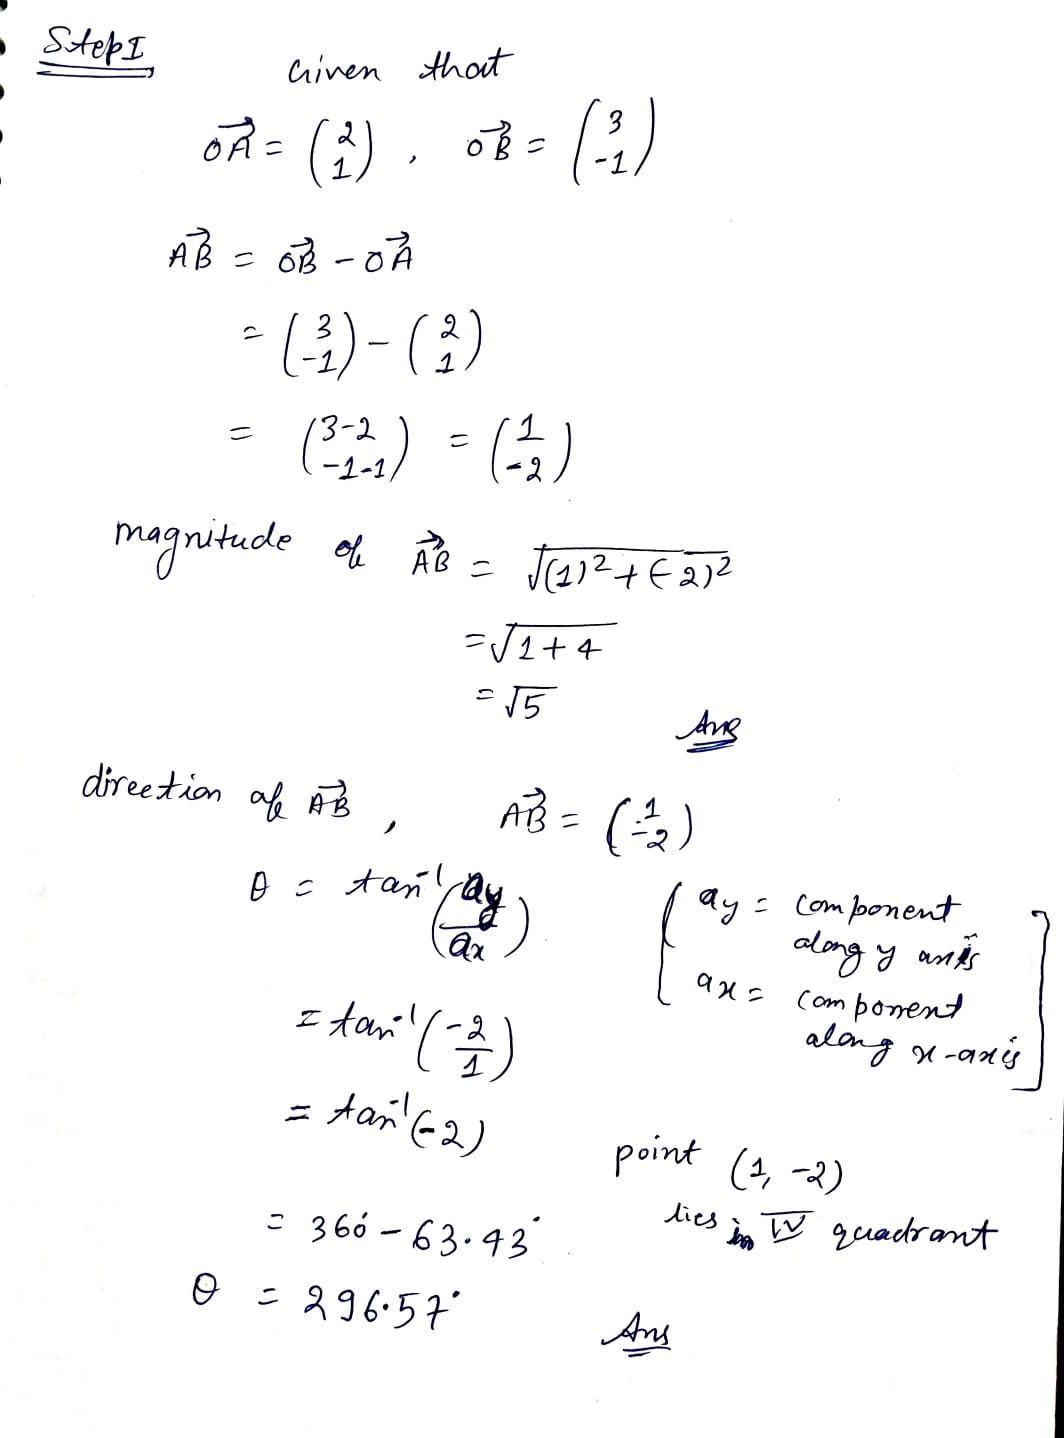 Step I
Given that
OA→ = (2 1) , OB→ = (3 -1)
AB→ = OB→ - OA→
= (3 -1) - (2 1)
= (3-2 -1-1) = (1 -2)
magnitude of AB→ = √(1)²+(-2)²
= √1+4
= √5
Ans
direction of AB→ , AB→ = (1 -2)
θ = tan⁻¹(ay/ax) [ay = component along y axis
ax = component along x-axis]
= tan⁻¹(-2/1)
= tan⁻¹(-2)
point (1, -2)
lies in IV quadrant
= 360° - 63.43°
θ = 296.57°
Ans